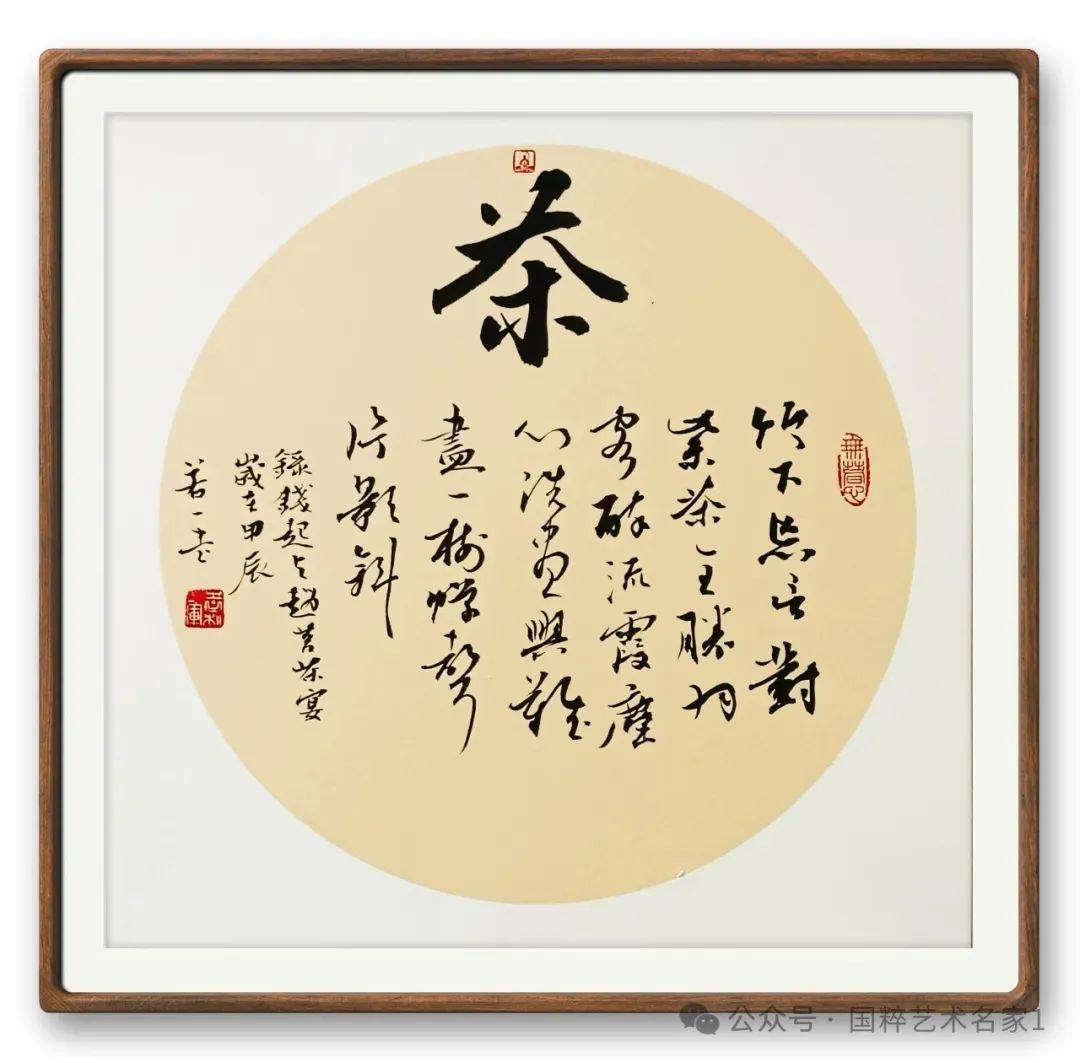 茶
竹下忘言對
紫茶全勝羽
客醉流霞塵
心洗盡興難
盡一樹蟬聲
片影斜
錄錢起与趙莒茶宴
歲在甲辰
若一
公众号 · 国粹艺术名家1